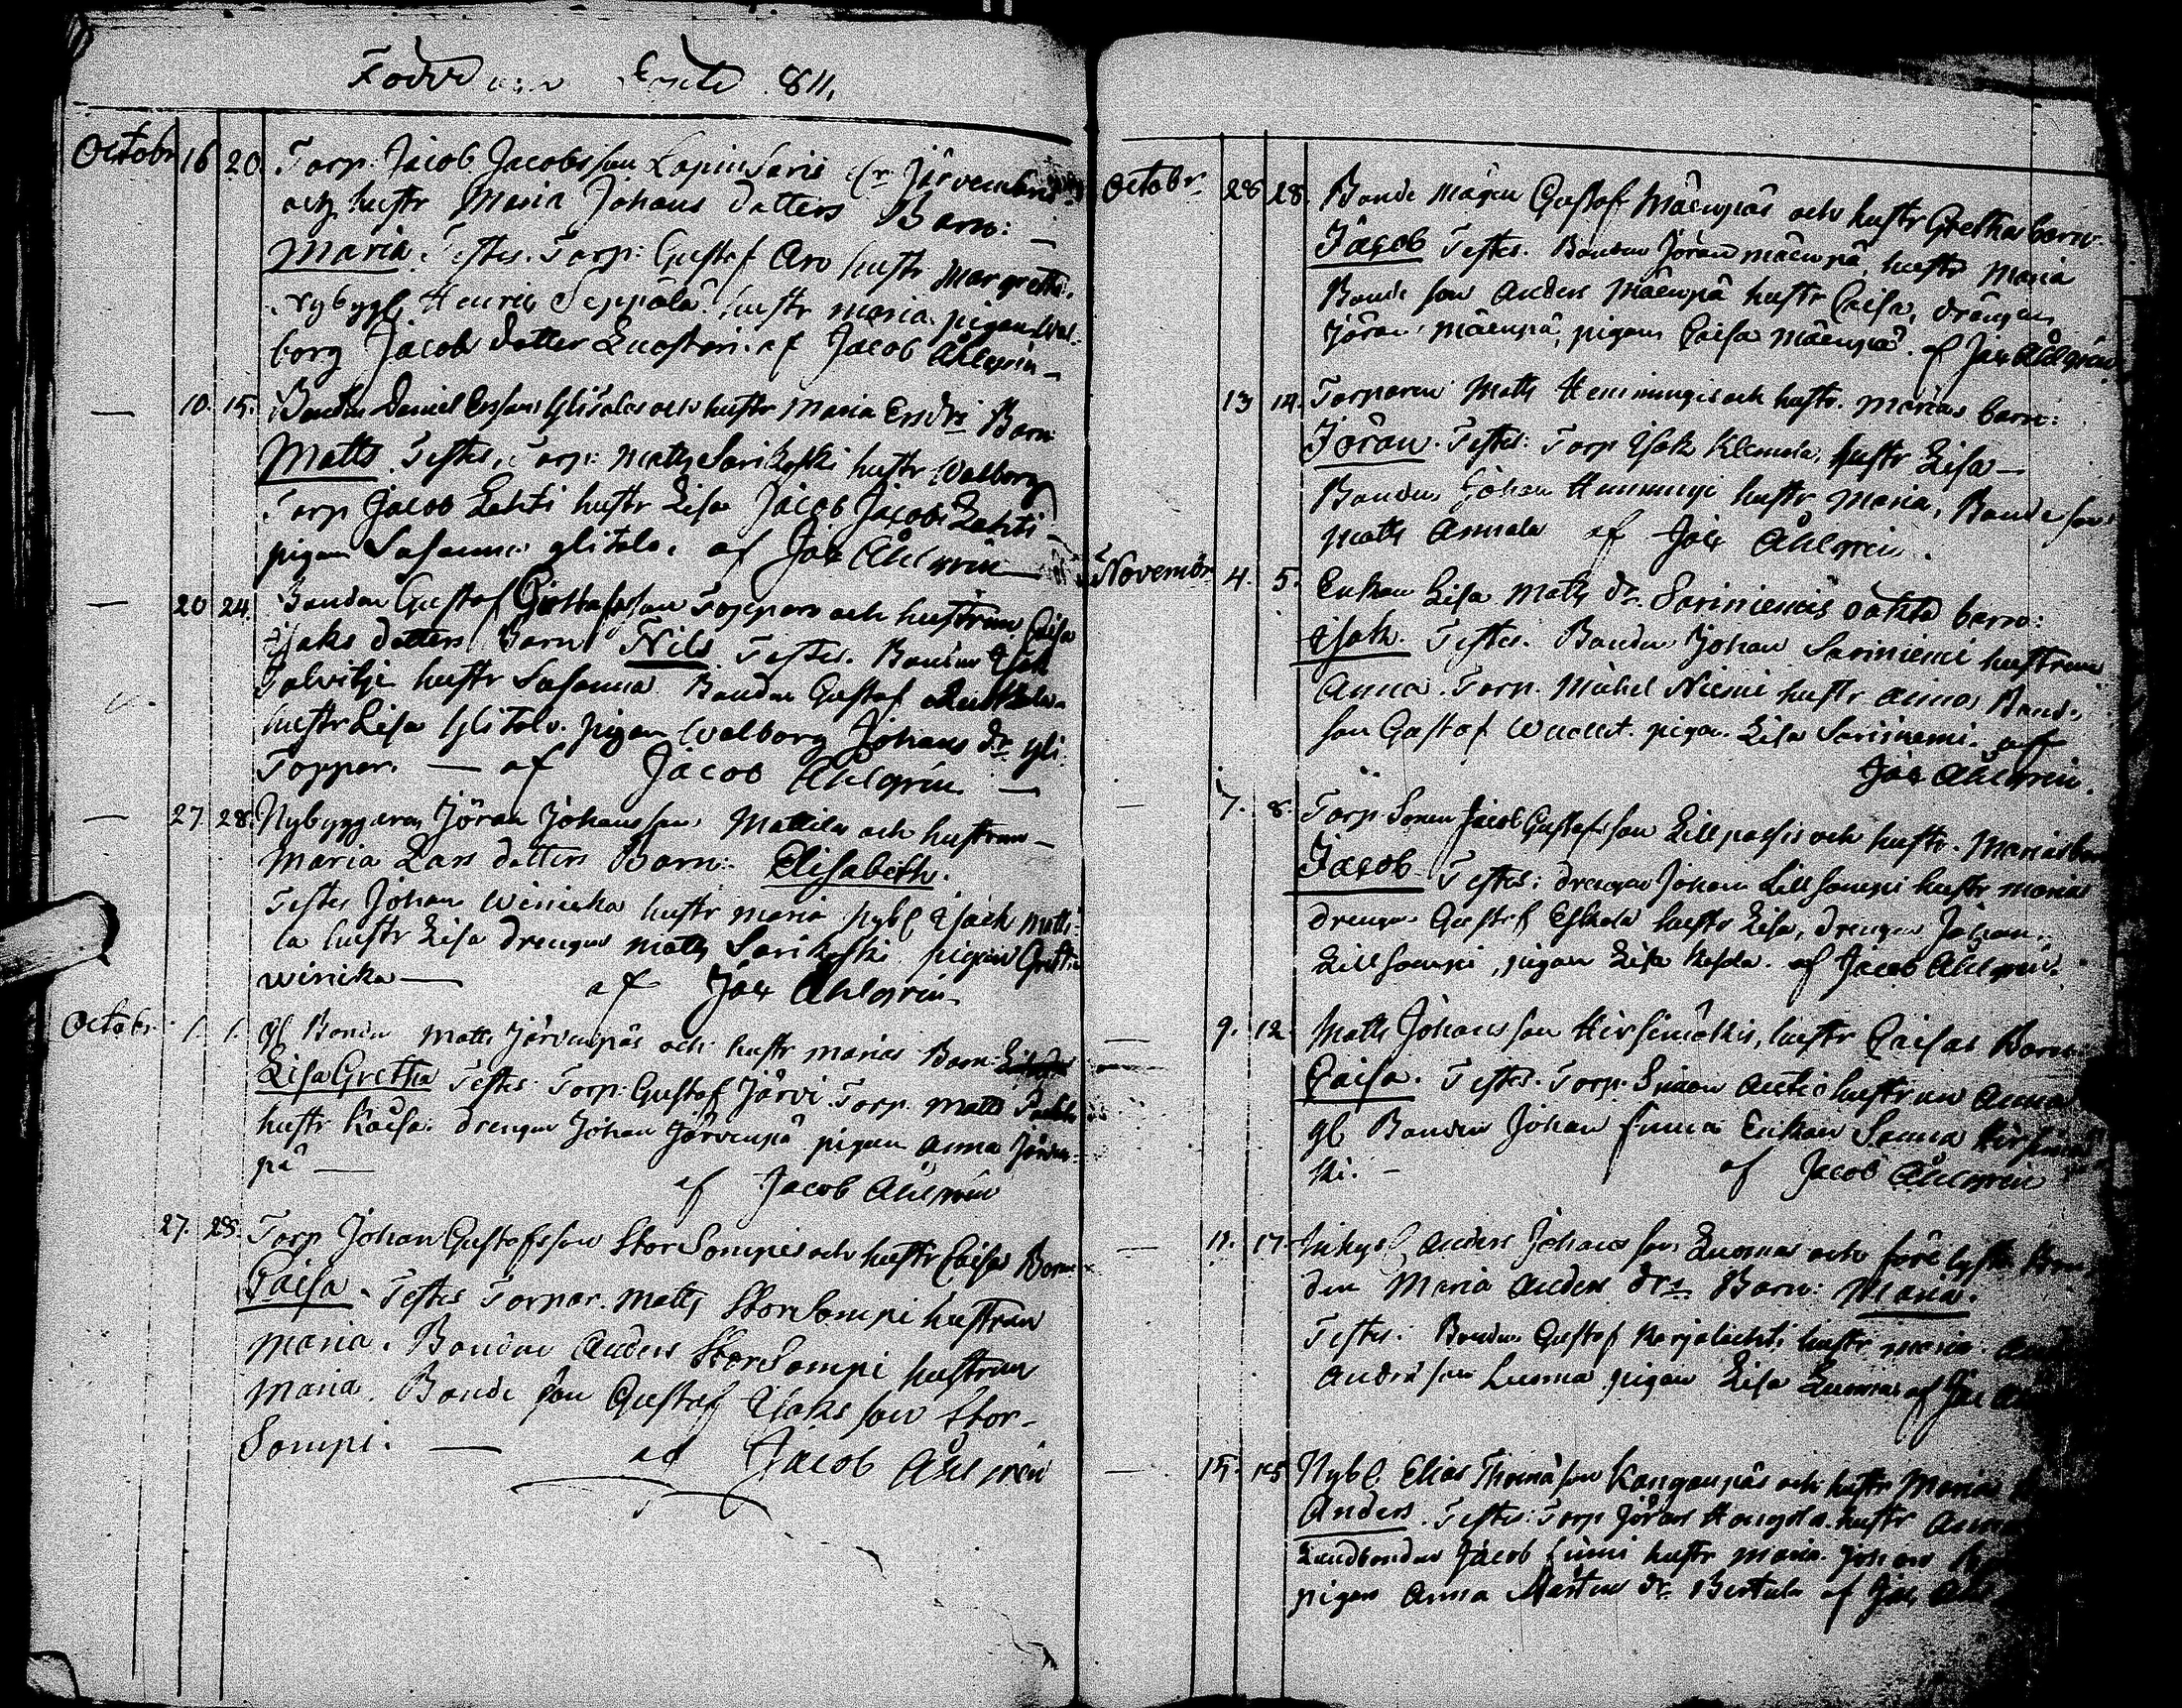 Födde 811,
Octobr 16 20 Torp: Jacob Jacobsson Lapinsaris
och hustr Maria Johans dotters Barn:
Maria. Testes. Torp: Gustaf Aro hustr Margretha.
Nybygg. Henric Seppälä hustr Maria. pigan Wal-
borg Jacobs dotter af Jacob Åhlgrén
— 10. 15. Bonden Daniel Ersson Ylitalos och hustr Maria Ersdrs Barn
Matts. Testes, Torp: Matts Sarikoski hustr Walborg
Torp Jacob Lahti hustr Lisa Jacob Jacobs Lahti
pigan Susanna Ylitalo. af Jac Åhlgrén
— 20 24. Bonden Gustaf Gustafsson Toppars och hustrun Caisa
Isaks dotters Barn Nils. Testes. Bonden Isak
Salvitje hustr Susanna Bonden Gustaf
hustr Lisa Ylitalo. pigan Walborg Johans dr. Yli-
Toppar. — af Jacob Åhlgrén —
— 27 28. Nybyggaren Jöran Johansson Mattilas och hustrun
Maria Lars dotters Barn: Elisabeth.
Testes Johan Winicka hustr Maria Nyb. Isack Matti-
la hustr Lisa drengen Matts Sarikoski. pigan Gretha
Winicka — af Jac Åhlgrén
Octobr. 1. 1. Gl. Bonden Matts Järvenpäs och hustr Marias Barn:
Lisa Gretha Testes Torp: Gustaf Järvi. Torp. Matts
hustr Kaisa. drengen Johan Järvenpä pigan Anna Järven-
pä — af Jacob Åhlgrén
27. 28. Torp Johan Gustafsson StorSompis och hustr Caisas Barn
Caisa. Testes Torpar. Matts StorSompi hustrun
Maria. Bonden Anders StorSompi hustrun
Maria. Bonde son Gustaf Isaksson Stor-
Sompi. — af Jacob Åhlgrén
Octobr. 26 28. Bonde mågen Gustaf Mäenpäs och hustr Grethas barn
Jacob Testes. Bonden Jöran Mäenpä, hustr Maria
Bonde son Anders Mäenpä hustr Caisa, drengen
Jöran Mäenpä, pigan Caisa Mäenpä. af Jac Åhlgrén
13 14. Torparen Matts Hemmingis och hustr. Marias barn:
Jöran. Testes: Torp Isak Klemola, hustr Lisa —
Bonden Johan Hemmingi hustr Maria, Bonde son
Matts Annala af Jac Åhlgrén.
Novembr 4. 5. Enkan Lisa Matts dr. Sariniemis oäkta barn:
Isak. Testes. Bonden Johan Sariniemi hustrun
Anna. Torp. Michel Niemi hustr Anna, Bonde
son Gustaf pigan Lisa Sariniemi. af
Jac Åhlgrén.
— 7. 8. Torp. Sonen Jacob Gustafsson och hustr. Marias barn
Jacob Testes: drengen Johan LillSompi hustr Maria
drengen Gustaf Eskola hustr Lisa, drengen Johan
LillSompi, pigan Lisa af Jacob Åhlgrén.
— 9. 12. Matts Johansson Hirsimäkis, hustr Caisas Barn:
Caisa. Testes. Torp. Simon Antio hustrun Anna
gl Bonden Johan Enkan Sanna
ki. — af Jacob Åhlgrén
— 11. 17. Inhys. Anders Johansson Luomas och
den Maria Anders drs Barn: Maria.
Testes. Bonden Gustaf Karjalahti hustr Maria.
Anders son Luoma pigan Lisa Luoma af Jac
— 15. Nyb. Elias Thomasson Kangaspäs och hustr Marias
Anders. Testes: Torp Jöran Hongola. hustr Anna
Landbonden Jacob hustr Maria. Johan
pigan Anna Mårtens dr. Bertula af Jac